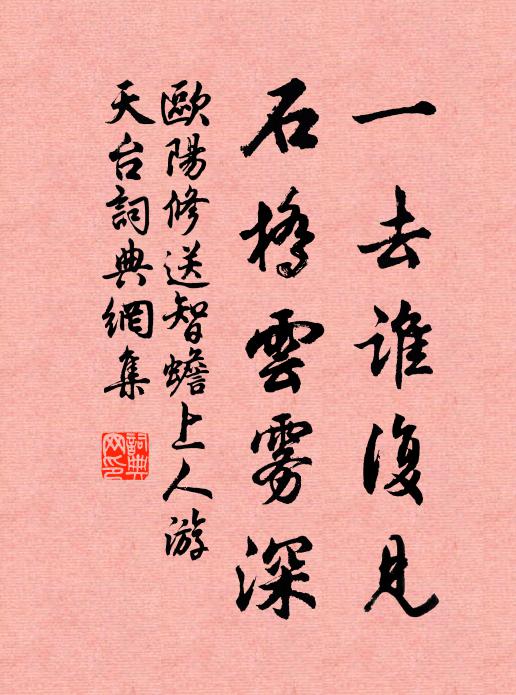 一去誰復見
石橋雲雾深
歐陽修送智蟾上人游
天台詞典網集
詞典网印